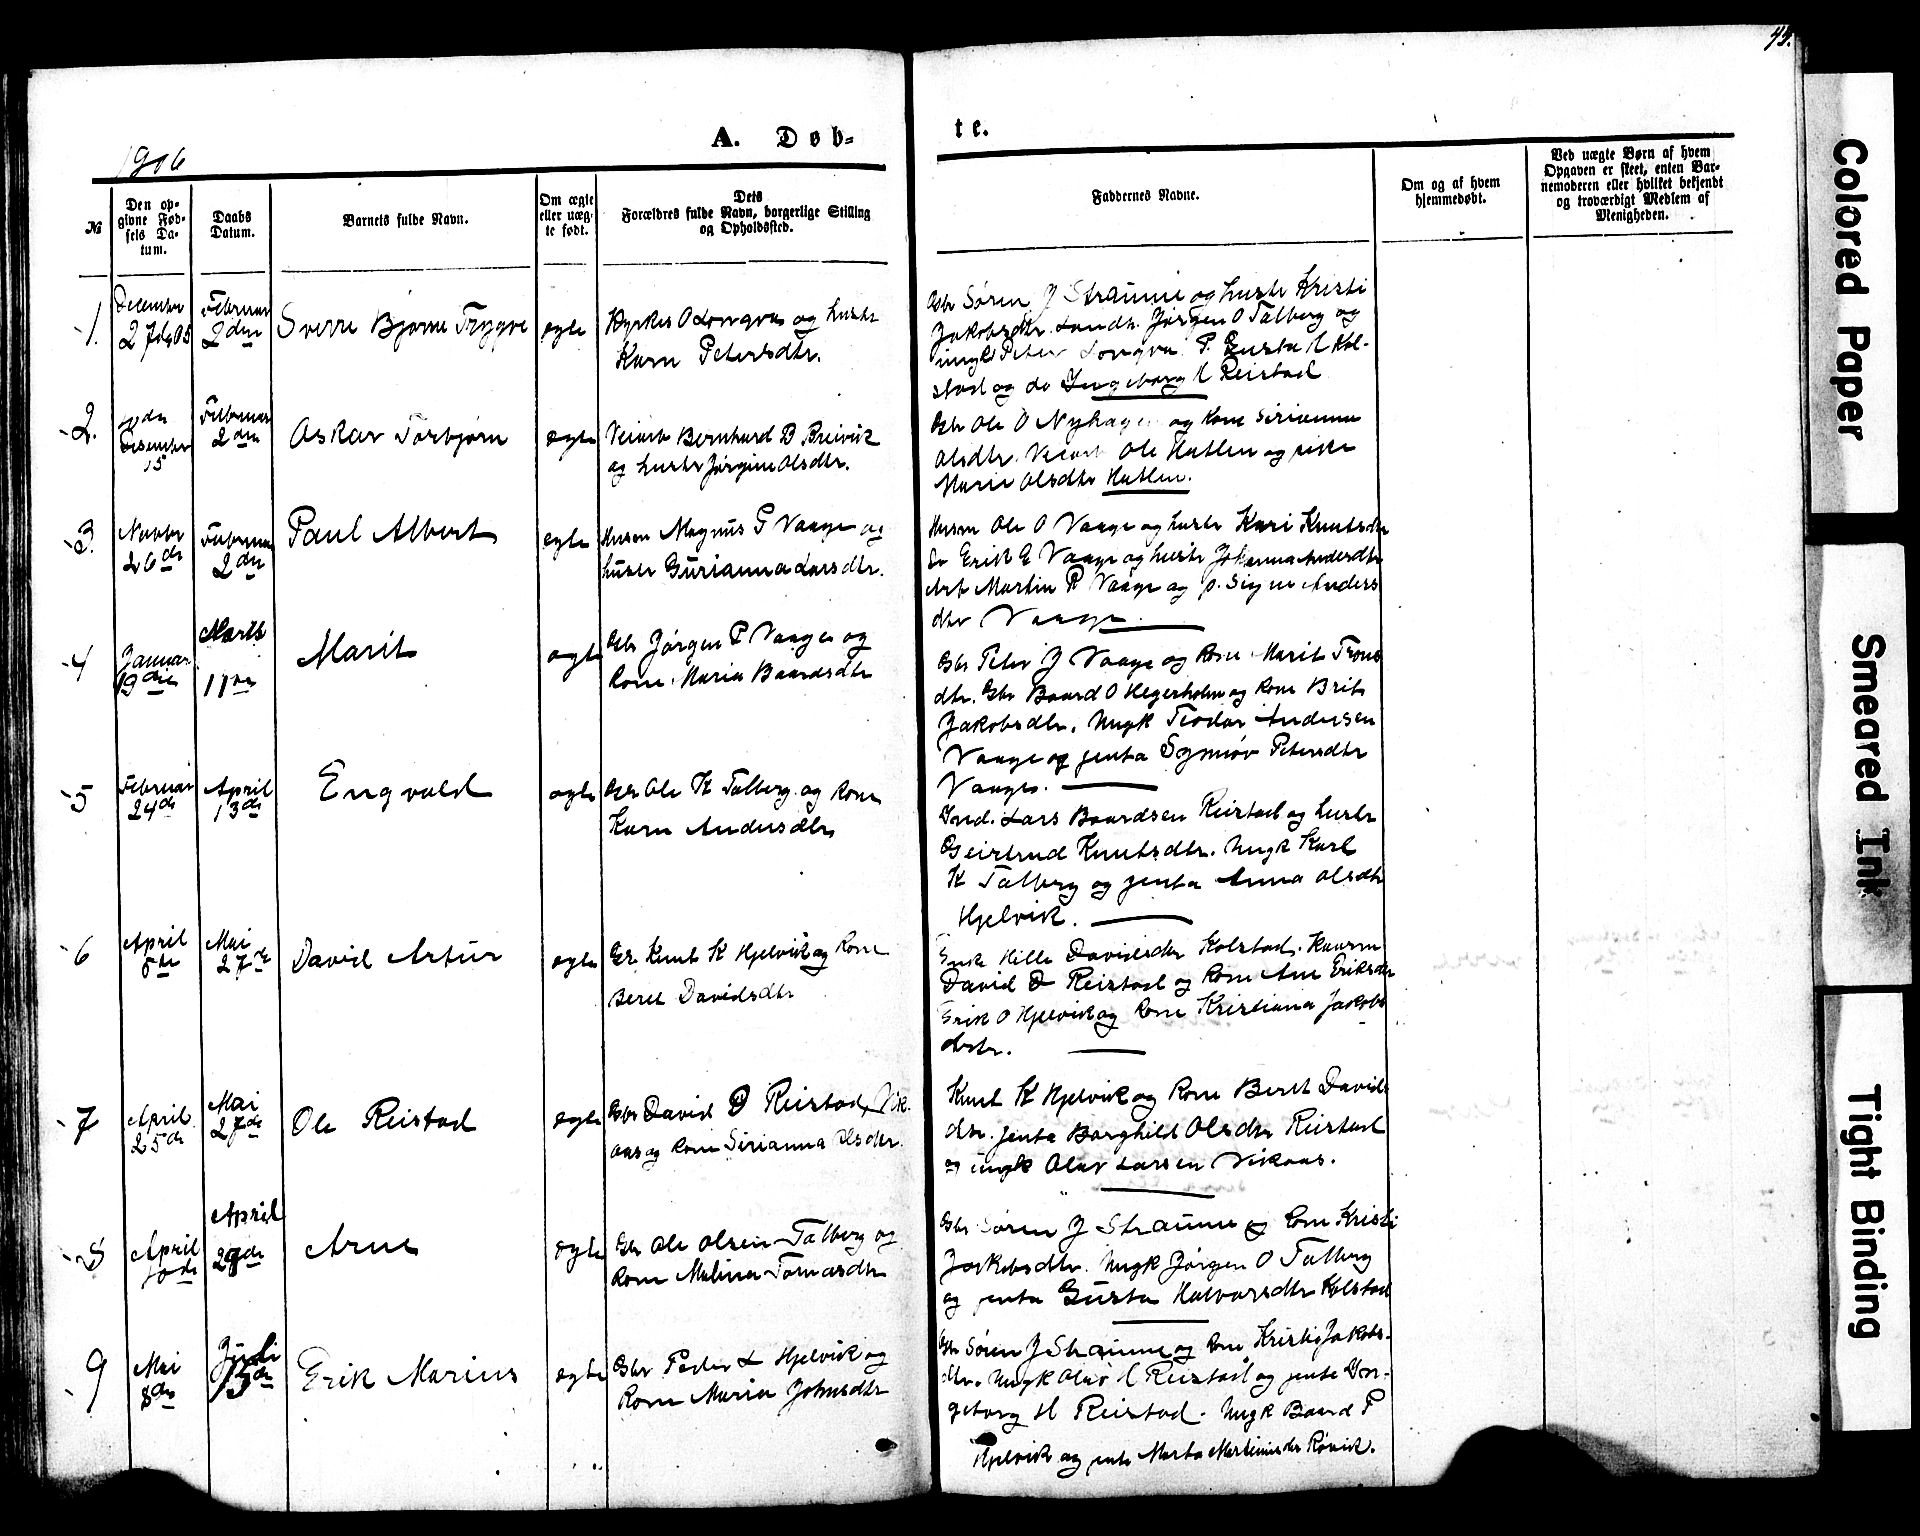 44.
1906
A. Døb-
te.
№
Den op-
givne Fød-
sels Da-
tum.
Daabs
Datum.
Barnets fulde Navn.
Om ægte
eller uæg-
te født.
Dets
Forældres fulde Navn, borgerlige Stilling
og Opholdssted.
Faddernes Navne.
Om og af hvem
hjemmedøbt.
Ved uægte Børn af hvem
Opgaven er skeet, enten Bar-
nemoderen eller hvilket bekjendt
og troværdigt Medlem af
Menigheden.
1.
December
27de 05
Februar
2den
Sverre Bjarne Trygve
ægte
O Longva og hustr
Karn Petersdtr.
Gbr Søren J Straume og hustr Kristi
Jakobsdtr. Landh. Jørgen O Talberg og
ungk Peter Longva. P. Gusta H Kol-
stad og do Ingeborg H Reistad
2.
Desember
15
Februar
2den
Oskar Torbjørn
ægte
Bernhard B Breivik
og hustr Jørgine Olsdtr.
Gbr Ole O Nyhagen og kone Sirianna
Olsdtr. Ole Hatlen og pike
Marie Olsdtr Hatlen.
3.
Novbr
26de
Februar
2den
Paul Albert
ægte
Husm Magnus P Vaage og
hustr Gurianna Larsdtr.
Husm Ole O Vaage og hustr Kari Knutsdtr
Erik E Vaage og hustr Johanna Andersdtr
Arb Martin R Vaage og p. Signe Anders
dtr Vaage.
4
Januar
19de
Marts
11te
Marit
ægte
Gbr Jørgen P Vaage og
kone Maria Baardsdtr
Gbr Peter J Vaage og kone Marit Trons
dtr. Gbr Baard O Hegerholm og kone Brit
Jakobsdtr. Ungk Teodor Andersen
Vaage og jenta Synnøv Petersdtr
Vaage.
5
Februar
24de
April
13de
Engvald
ægte
Gbr Ole K Talberg og kone
Karn Andersdtr
Lars Baardsen Reistad og hustr
Geirtrud Knutsdtr. Ungk Karl
K Talberg og jenta Anna Olsdtr
Hjelvik.
6
April
5te
Mai
27de
David Artur
ægte
Gbr Knut K Hjelvik og kone
Beret Davidsdtr
Enke Hille Davidsdtr Kolstad. Kaarm
David D Reistad og kone Ane Eriksdtr
Erik O Hjelvik og kone Kristiana Jakobs
dtr.
7
April
25de
Mai
27de
Ole Reistad
ægte
Gbr David D Reistad, Vik-
aas og kone Sirianna Olsdtr.
Knut K Hjelvik og kone Beret Davids
dtr. Jenta Borghild Olsdtr Reistad
og ungk Olav Larsen Vikaas.
8
April
10de
April
29de
Arne
ægte
Gbr Ole Olsen Talberg og
kone Malina Tomasdtr
Gbr Søren J Straume og kone Kristi
Jakobsdtr. Ungk Jørgen O Talberg
og jenta Gusta Halvorsdtr Kolstad
9
Mai
8de
Juli
15de
Erik Marius
ægte
Gbr Peder L Hjelvik og
kone Maria Johnsdtr
Gbr Søren J Straume og kone Kristi Jakobs-
dtr. Ungk Olav H Reistad og jenta In-
geborg H Reistad. Ungk Baard P
Hjelvik og jenta Marta Martinusdtr Røvik.
Colored Paper
Smeared Ink
Tight Binding